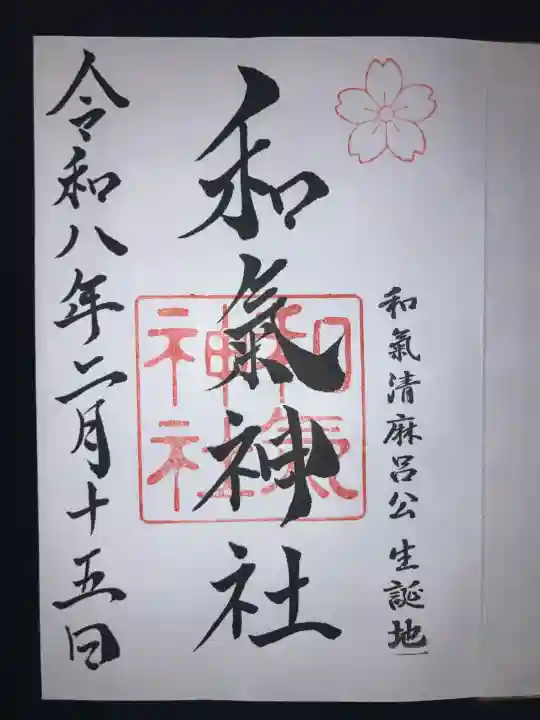 和氣清麻呂公生誕地
和氣神社
和氣
神社
令和八年二月十五日